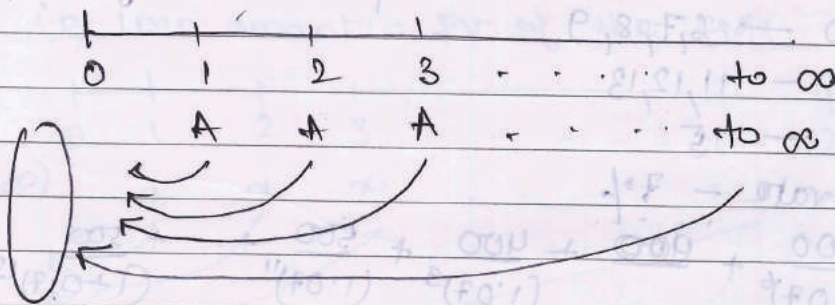 0 1 2 3 . . . . . to ∞
A A A . . . . to ∞